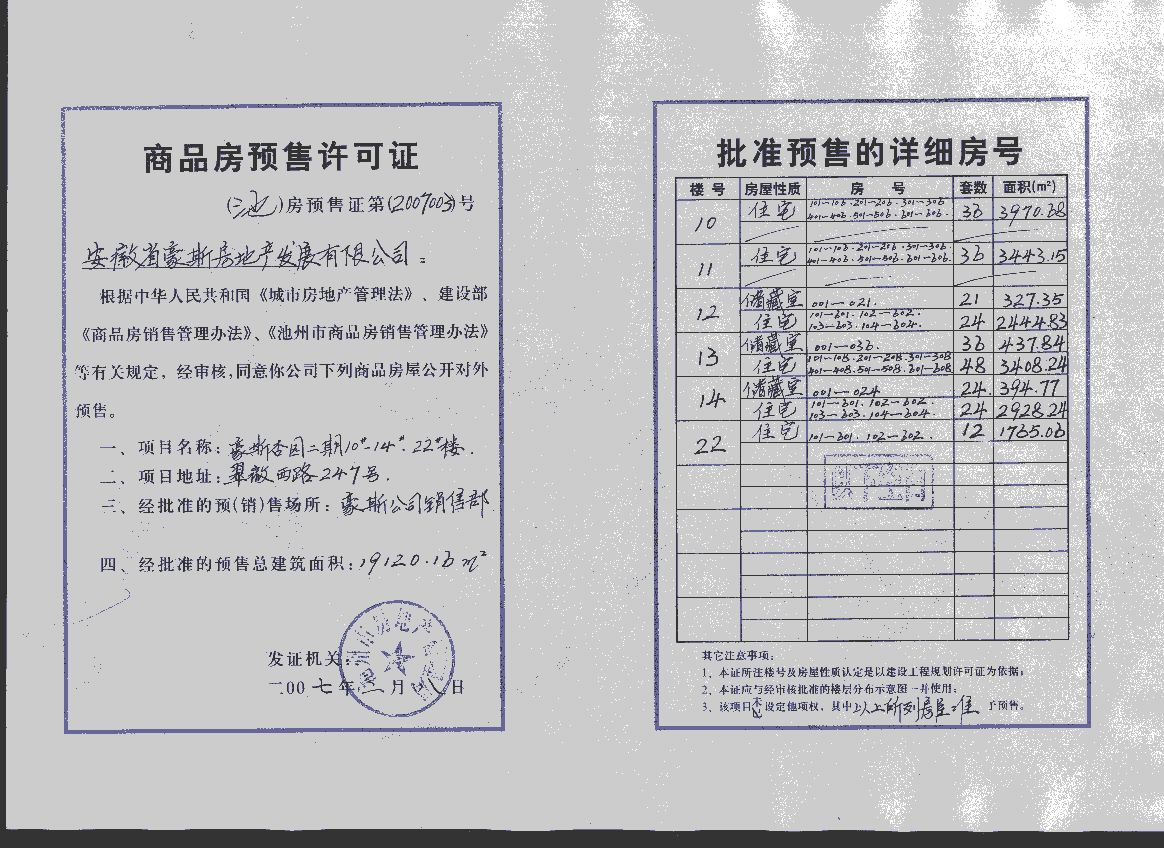 商品房预售许可证
(池)房预售证第(2007003)号
安徽省豪斯房地产发展有限公司：
根据中华人民共和国《城市房地产管理法》、建设部
《商品房销售管理办法》、《池州市商品房销售管理办法》
等有关规定，经审核，同意你公司下列商品房屋公开对外
预售。
一、项目名称：豪斯杏园二期10#-14#.22#楼.
二、项目地址：翠微西路247号.
三、经批准的预(销)售场所：豪斯公司销售部
四、经批准的预售总建筑面积：19120.16m²
发证机关：
二00七年二月 八日
批准预售的详细房号
楼号 房屋性质 房号 套数 面积(m²)
10 住宅 101-106.201-206.301-306. 401-406.501-506.601-606. 36 3970.38
11 住宅 101-106.201-206.301-306. 401-406.501-506.601-606. 36 3443.15
12 储藏室 001-021. 21 327.35
住宅 101-601.102-602. 103-603.104-604. 24 2444.83
13 储藏室 001-036. 36 437.84
住宅 101-108.201-208.301-308 401-408.501-508.601-608 48 3408.24
14 储藏室 001-024 24. 394.77
住宅 101-601.102-602. 103-603.104-604. 24 2928.24
22 住宅 101-601.102-602. 12 1765.06
其它注意事项：
1、本证所注楼号及房屋性质认定是以建设工程规划许可证为依据；
2、本证应与经审核批准的楼层分布示意图一并使用；
3、该项目未设定他项权，其中以上所列房屋准予预售。